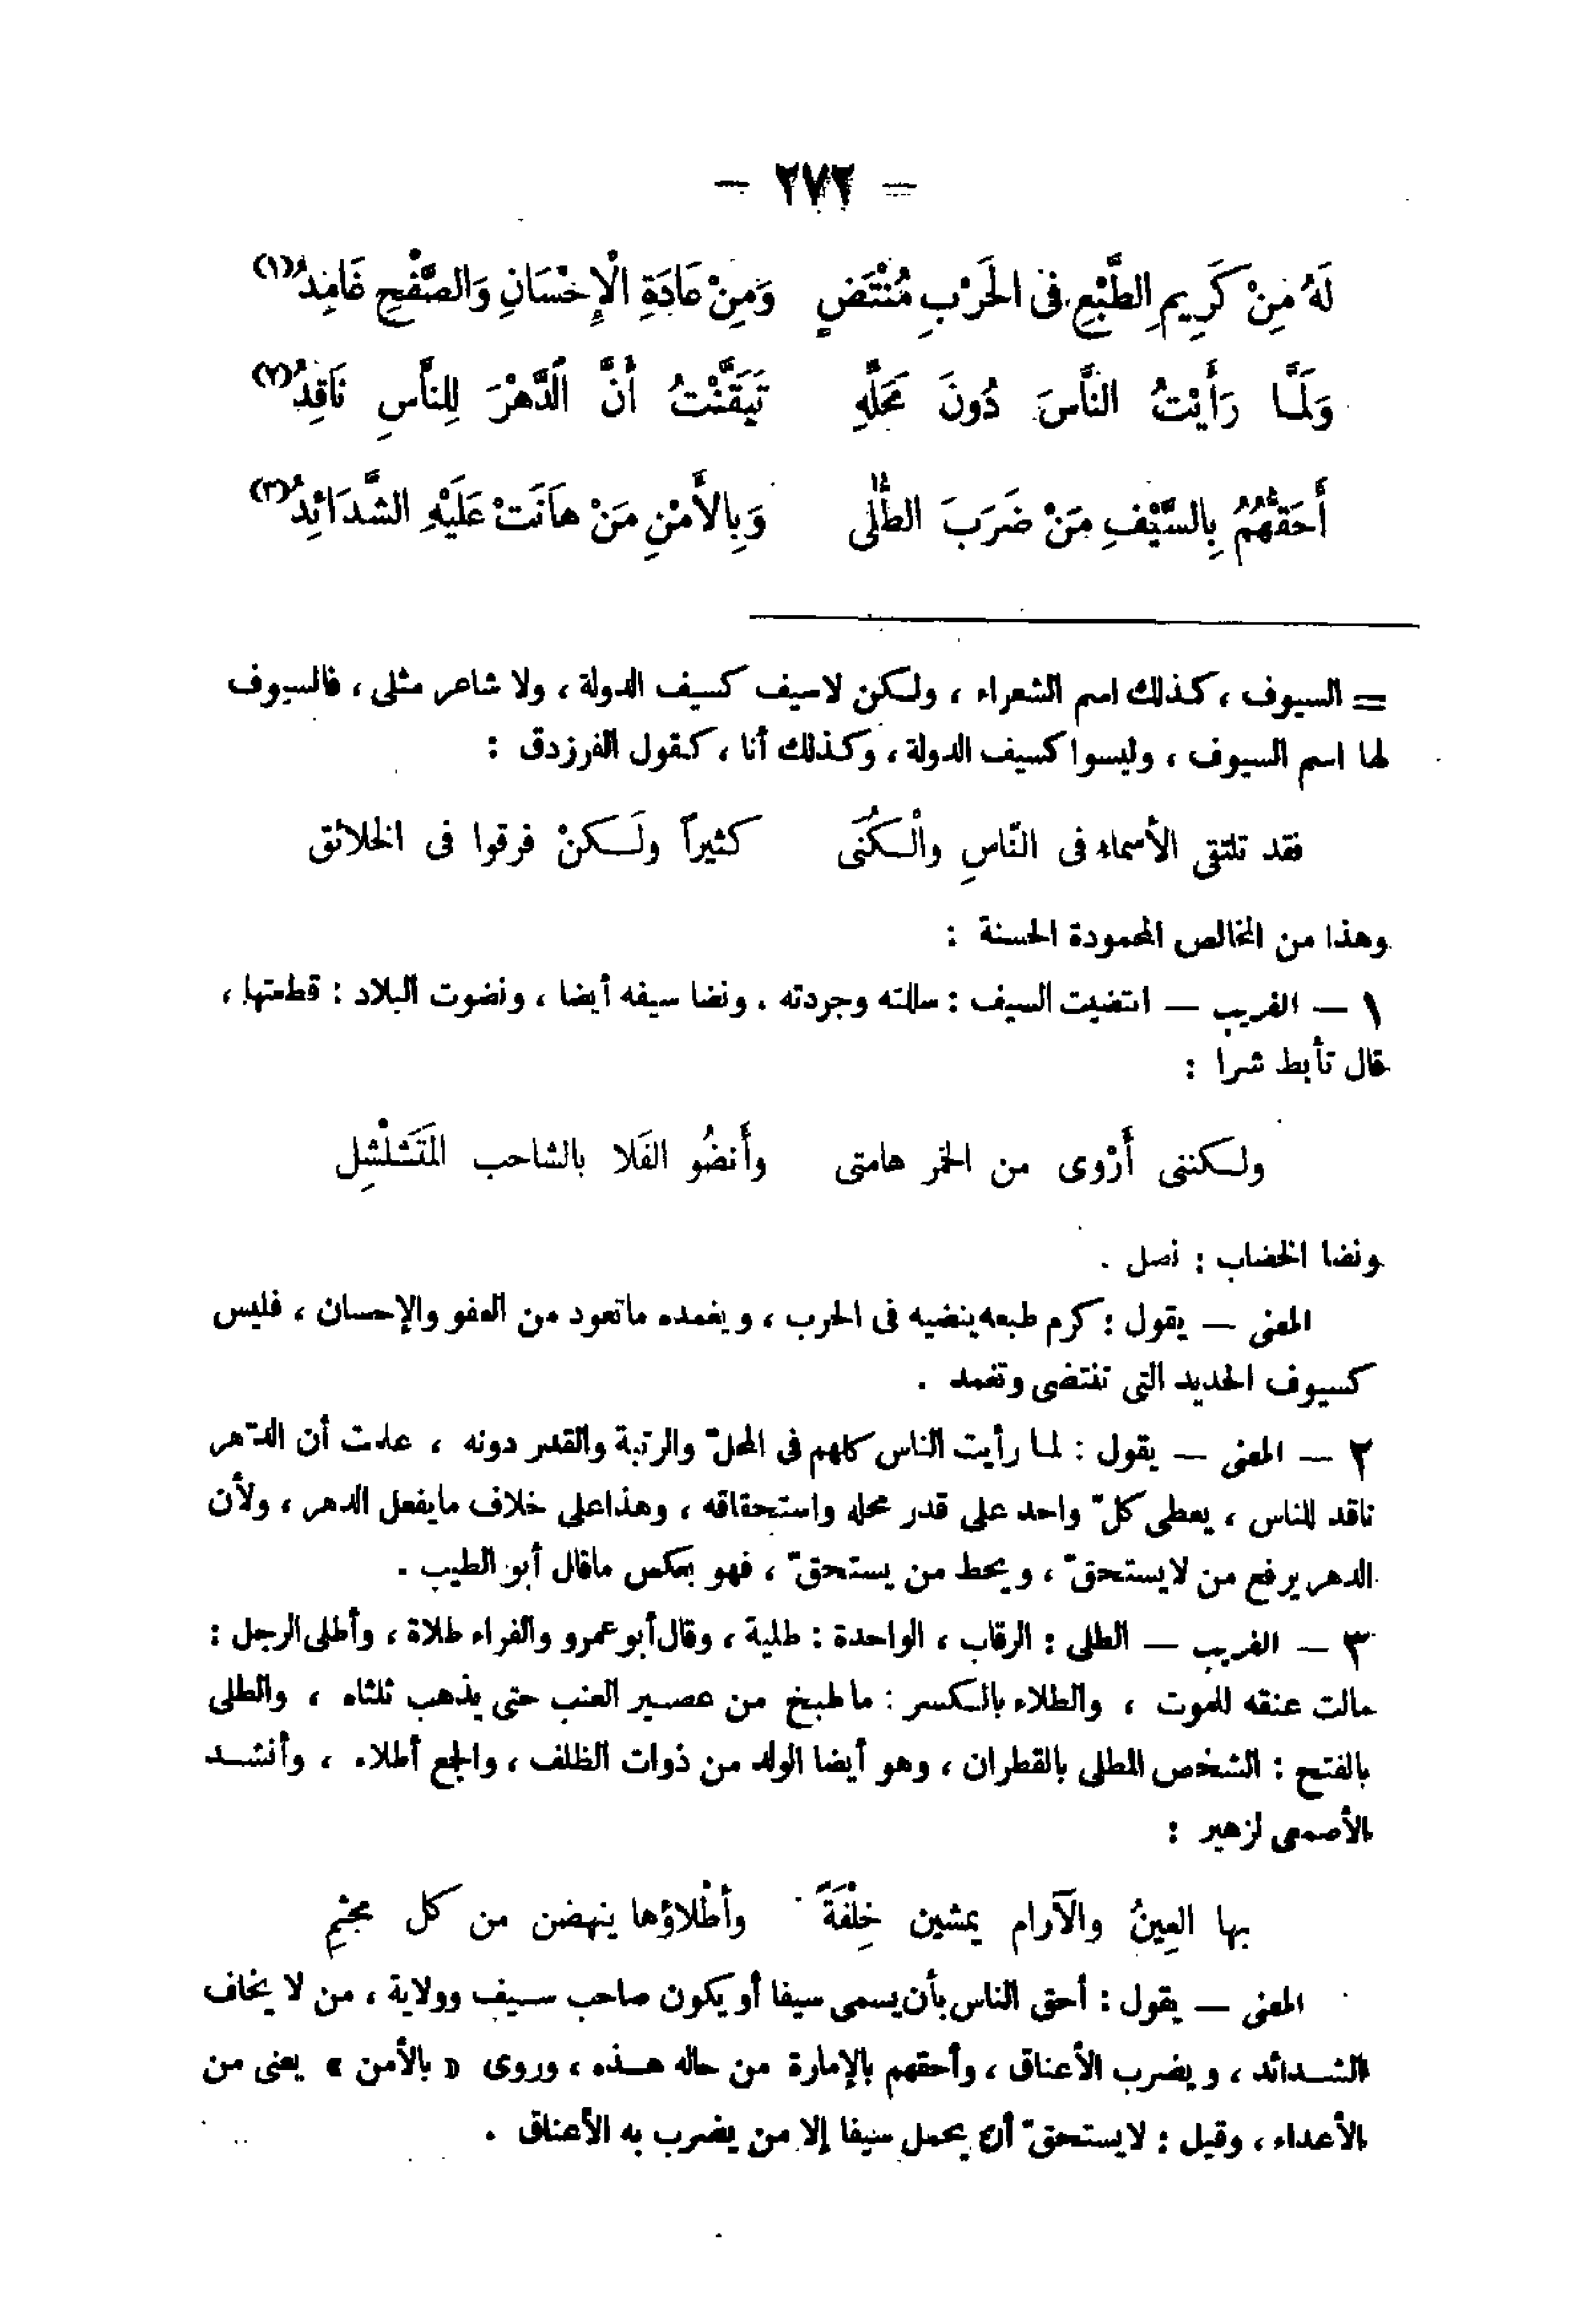 – ٢٧٢ –
لَهُ مِنْ كَرِيمِ الطَّبْعِ فِى الْحَرْبِ مُنْتَضٍ وَمِنْ عَادَةِ الْإِحْسَانِ وَالصَّفْحِ غَامِدُ(١)
وَلَمَّا رَأَيْتُ النَّاسَ دُونَ مَحَلِّهِ تَيَقَّنْتُ أَنَّ الدَّهْرَ لِلنَّاسِ نَاقِدُ(٢)
أَحَقُّهُمُ بِالسَّيْفِ مَنْ ضَرَبَ الطُّلَى وَبِالْأَمْنِ مَنْ هَانَتْ عَلَيْهِ الشَّدَائِدُ(٣)
= السيوف ، كذلك اسم الشعراء ، ولكن لاسيف كسيف الدولة ، ولا شاعر مثلى ، فالسيوف
لها اسم السيوف ، وليسوا كسيف الدولة ، وكذلك أنا ، كقول الفرزدق :
فقد تلتقى الأسماء فى النّاسِ والْكُنَى كثيراً ولَكنْ فرقوا فى الخلائق
وهذا من المخالص المحمودة الحسنة :
١ – الغريب – انتضيت السيف : سللته وجردته . ونضا سيفه أيضا ، ونضوت البلاد : قطعتها ،
قال تأبط شرا :
ولكننى أَرْوى من الخمر هامتى وأَنضُو الفَلا بالشاحب المَتَشَلْشِل
ونضا الخضاب : نصل .
المعنى – يقول : كرم طبعه ينضيه فى الحرب ، ويغمده ماتعود من العفو والإحسان ، فليس
كسيوف الحديد التى تنتضى وتغمد .
٢ – المعنى – يقول : لما رأيت الناس كلهم فى المحلّ والرتبة والقدر دونه ، علمت أن الدّهر
ناقد للناس ، يعطى كلّ واحد على قدر محله واستحقاقه ، وهذاعلى خلاف مايفعل الدهر ، ولأن
الدهر يرفع من لايستحقّ ، ويحط من يستحقّ ، فهو بعكس ماقال أبو الطيب .
٣ – الغريب – الطلى : الرقاب ، الواحدة : طلية ، وقال أبو عمرو والفراء طلاة ، وأطلى الرجل :
مالت عنقه للموت ، والطلاء بالكسر : ماطبخ من عصير العنب حتى يذهب ثلثاه ، والطلى
بالفتح : الشخص المطلى بالقطران ، وهو أيضا الولد من ذوات الظلف ، والجمع أطلاء ، وأنشد
الأصمعى لزهير :
بها العِينُ والآرام يمشين خِلْفَةً وأطْلاؤها ينهضن من كل مجْثِمِ
المعنى – يقول : أحق الناس بأن يسمى سيفا أو يكون صاحب سيف وولاية ، من لا يخاف
الشدائد ، ويضرب الأعناق ، وأحقهم بالإمارة من حاله هذه ، وروى « بالأمن » يعنى من
الأعداء ، وقيل : لايستحقّ أن يحمل سيفا إلا من يضرب به الأعناق .